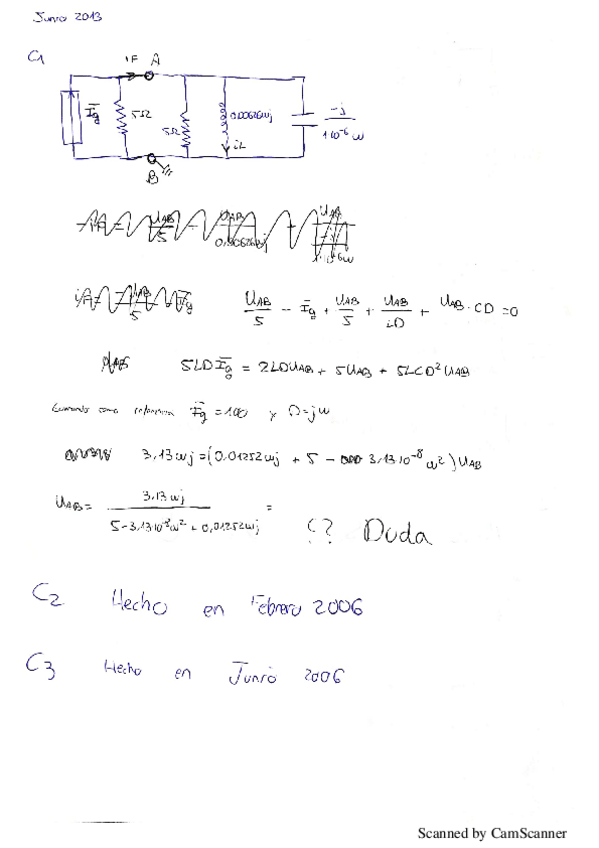 Junio 2013
C1
iF A
Ig 5Ω 5Ω 0.00626wj -j / 1·10⁻⁶ w
iL
B
UAB/5 - Ig + UAB/5 + UAB/LD + UAB·CD = 0
5LDIg = 2LDUAB + 5UAB + 5LCD²UAB
como referencia Ig = 100 y D=jw
3,13wj = (0.01252wj + 5 - 3,13·10⁻⁸ w²) UAB
UAB = 3,13wj / 5-3,13·10⁻⁸w² + 0,01252wj =
¿? Duda
C2 Hecho en Febrero 2006
C3 Hecho en Junio 2006
Scanned by CamScanner